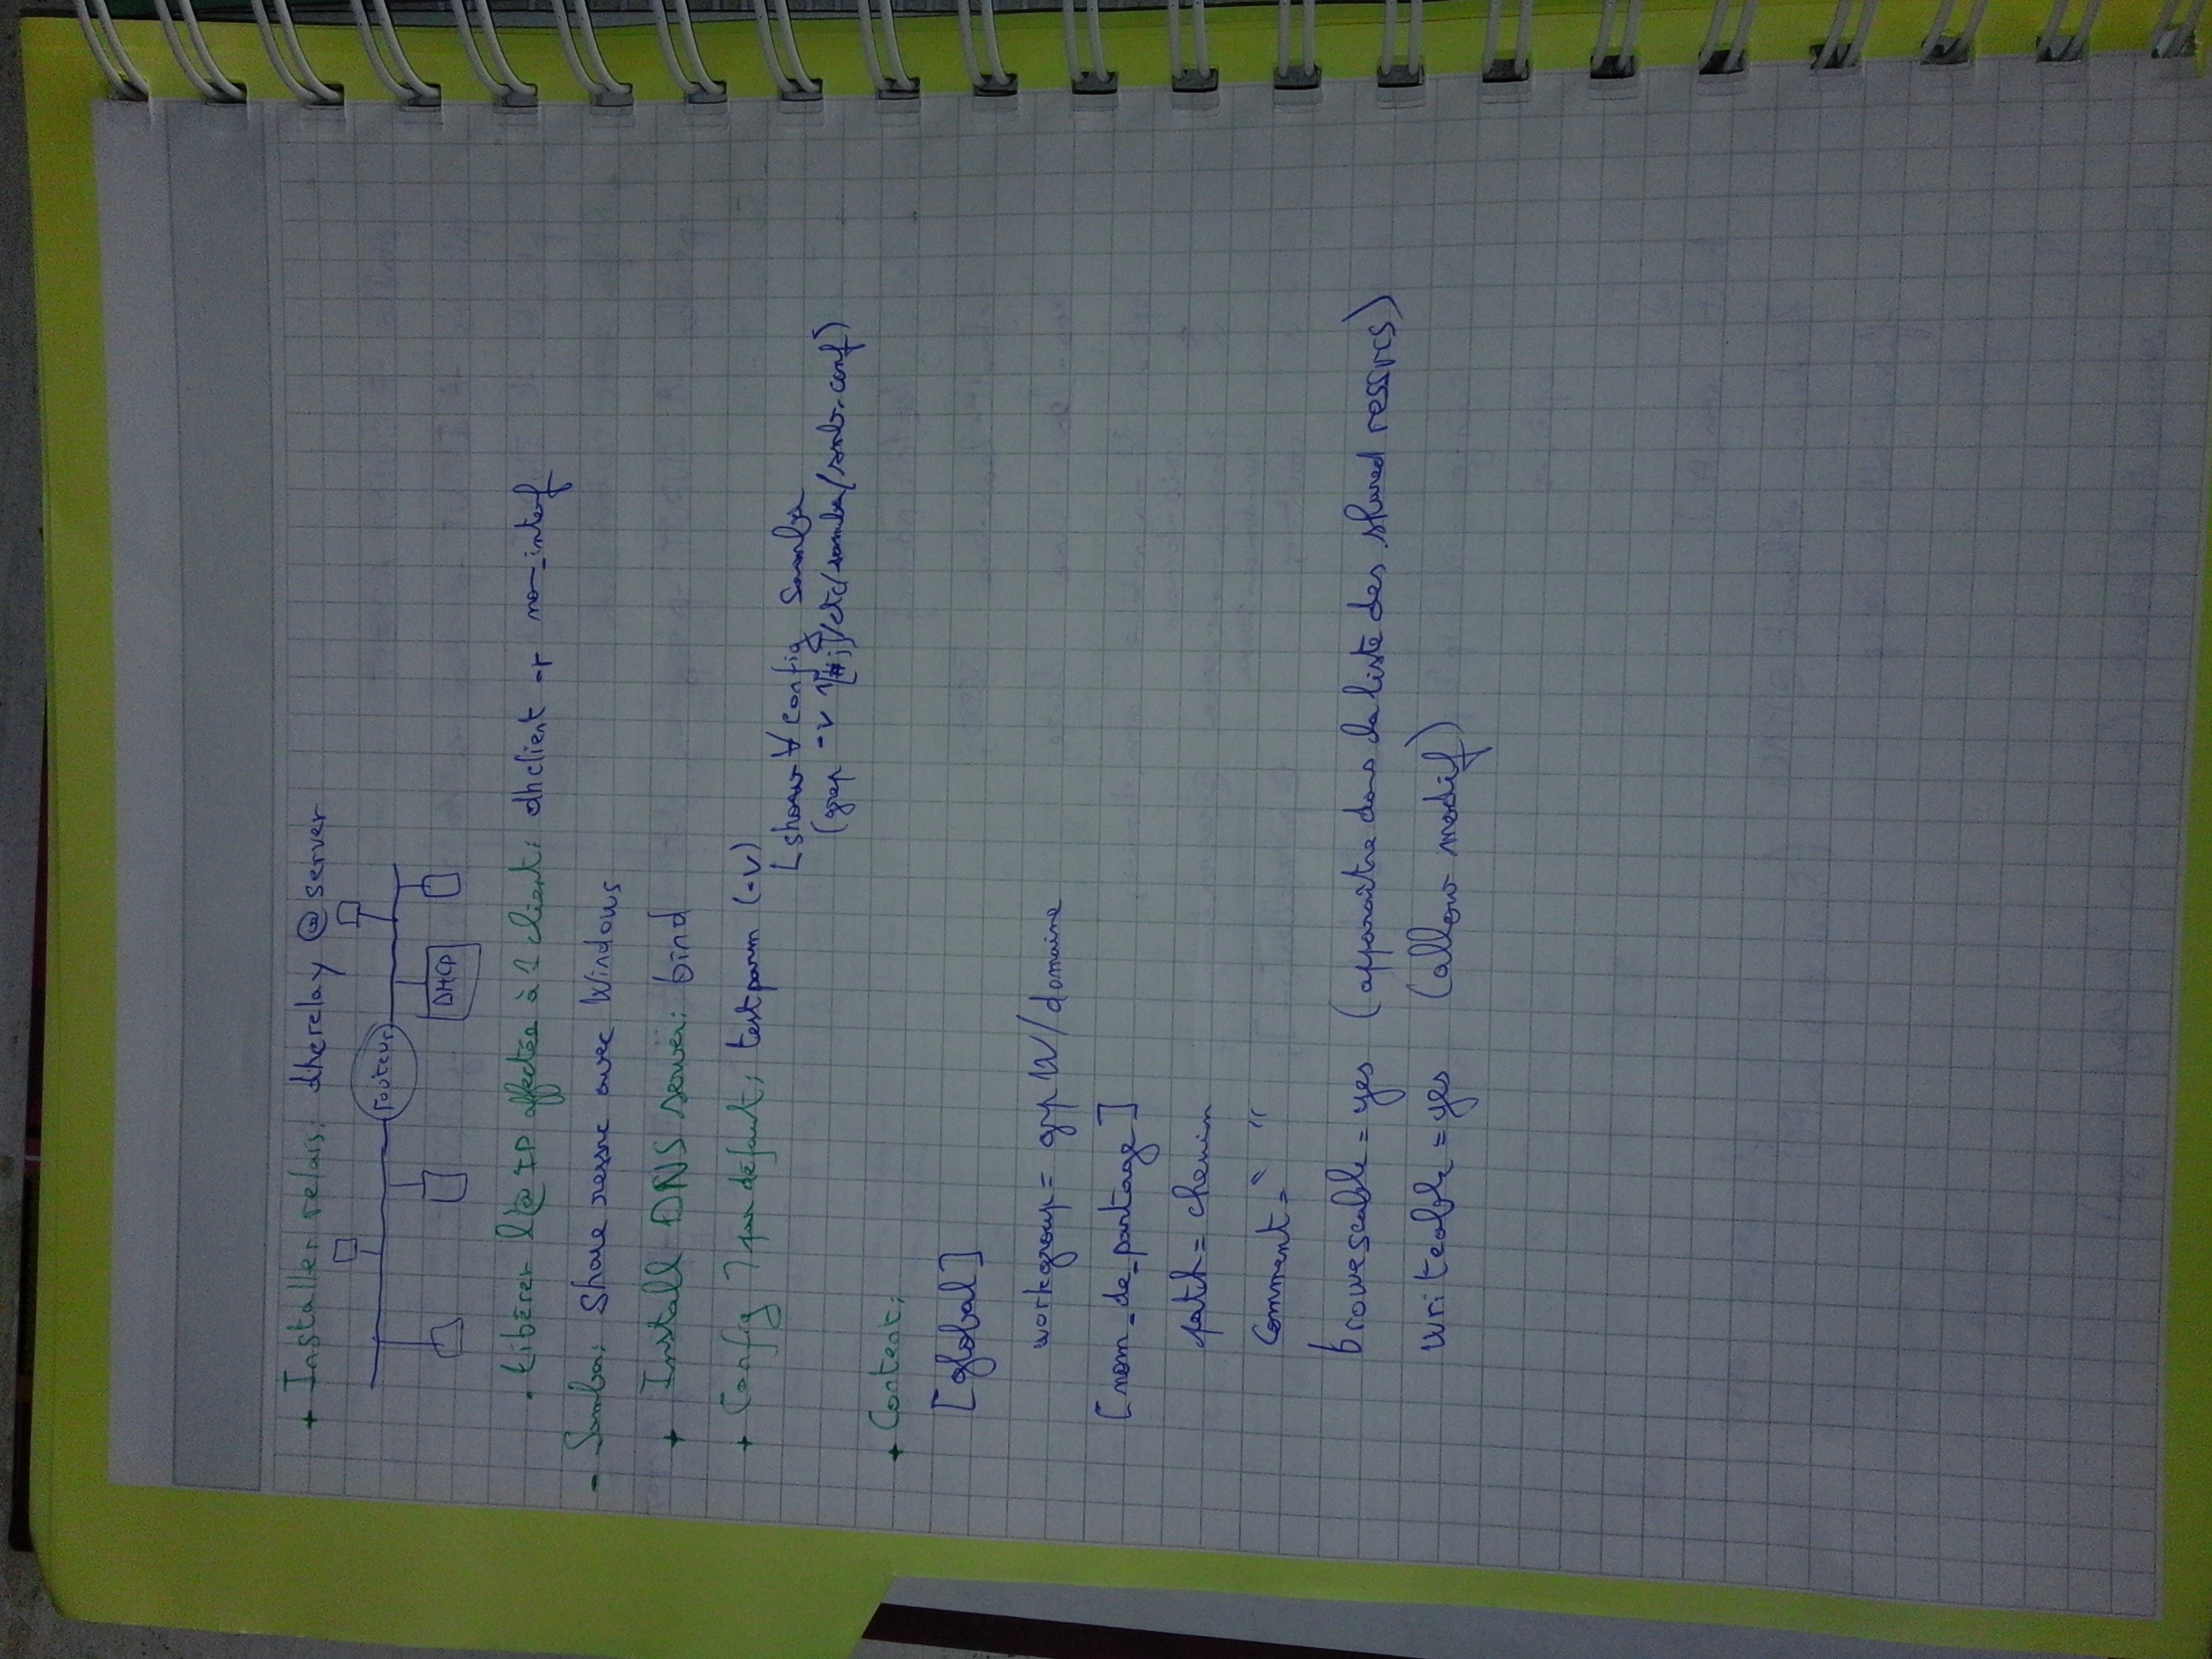 + Installer relais: dhcrelay @server
routeur
DHCP
. Libérer l'@ IP affectée à 1 client: dhclient -r no_interf
- Samba: Share ressrc avec Windows
+ Install DNS server: bind
+ Config par défaut: testparm (-v)
show ∀ config Samba
(grep -v ^[#;] /etc/samba/smb.conf)
+ Content:
[global]
workgroup = grp W/domaine
[nom_de_partage]
path = chemin
Comment = " "
browseable = yes (apparaître dans la liste des shared ressrcs)
writeable = yes (allow modif)